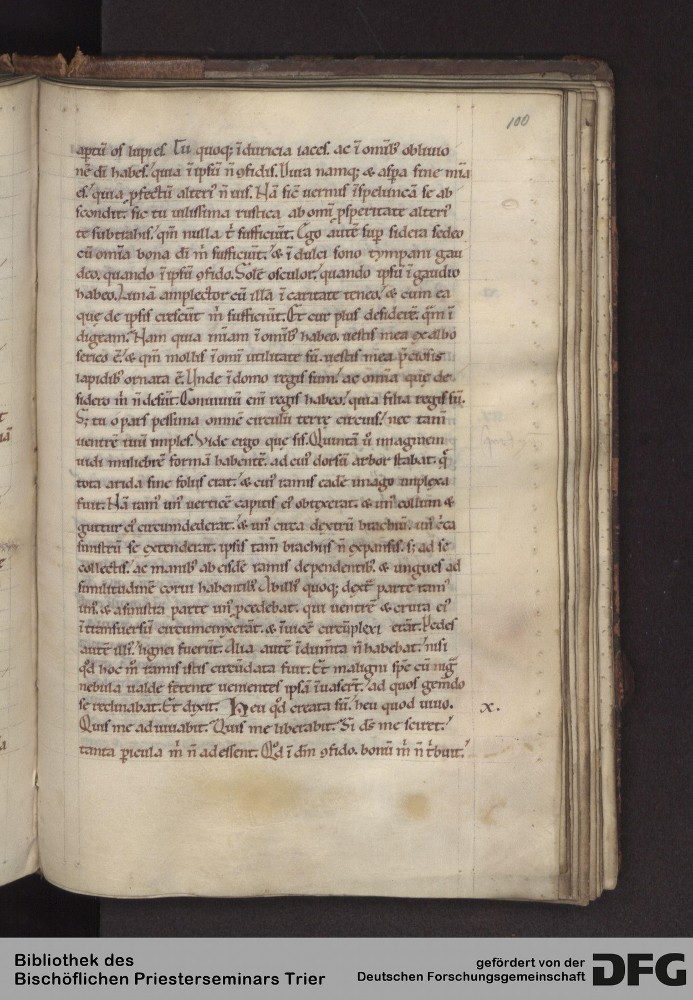 100
aptū os lupi es. Tu quoq; ī duricia iaces. ac ī omīb oblivio
nē dī habes. quia ī ipsū n̄ ꝯfidis. Viva namq; & aspa sine mīa
es. quia ꝓfectū alteri' n̄ vis. Nā sic̄ vermis ī spelunca se ab
scondit. sic tu vilissima rustica ab omī ꝓsperitate alteri'
te subtrahis. qm̄ nulla t̄ sufficiūt. Ego autē sup sidera sedeo
cū omīa bona dī m̄ sufficiūt. & ī dulci sono tympani gau
deo. quando ī ipsū ꝯfido. Solē osculor. quando ipsū ī gaudio
habeo. Lunā amplector cū illā ī caritate teneo. & cum ea
quę de ipsis crescūt m̄ sufficiūt. Et cur plus desiderē. qm̄ ī
digeam. Nam quia mīam ī omīb habeo. vestis mea ex albo
serico ē. & qm̄ mollis ī omī utilitate sū. vestis mea p̄ciosis
lapidib ornata ē. Unde ī domo regis sum. ac omīa quę de
sidero m̄ n̄ desūt. Conviviū eni regis habeo. quia filia regis sū.
S; tu o pars pessima omnē circulū terrę circuis. nec tam
ventrē tuū imples. Vide ergo quę sis. Quintā v̄ imaginem
vidi muliebrē formā habentē. ad cui' dorsū arbor stabat. q̄
tota arida sine foliis erat. & cui' ramis eadē imago inplexa
fuit. Nā ram' un' verticē capitis ei' obtexerat. & un' collum &
guttur ei' circumdederat. & un' circa dextrū brachiū. un' c̄ca
sinistrū se extenderat. ipsis tam brachiis n̄ expansis. s; ad se
collectis. ac manib' ab eisdē ramis dependentib'. & ungues ad
similitudinē corvi habentib'. A villi' quoq; dext̄ parte ram'
un'. & a sinistra parte un' ꝓcedebat. qui ventrē & crura ei'
ī transversū circumcinxerāt. & īvicē circūplexi erāt. Pedes
autē illi' lignei fuerūt. Alia autē īdum̄ta n̄ habebat. nisi
qd hoc m̄ ramis istis circūdata fuit. Et maligni spc cū nig̅
nebula valde fetente venientes ipsā īvaserūt. ad quos gemēdo
se reclinabat. Et dixit. Heu qd creata sū. heu quod vivo.
x.
Quis me adiuvabit. Quis me liberabit. Si ds me sciret.
tanta picula m̄ n̄ adessent. Qd ī dm̄ ꝯfido. bonū m̄ n̄ t̄buit.
Bibliothek des
Bischöflichen Priesterseminars Trier
gefördert von der
Deutschen Forschungsgemeinschaft
DFG